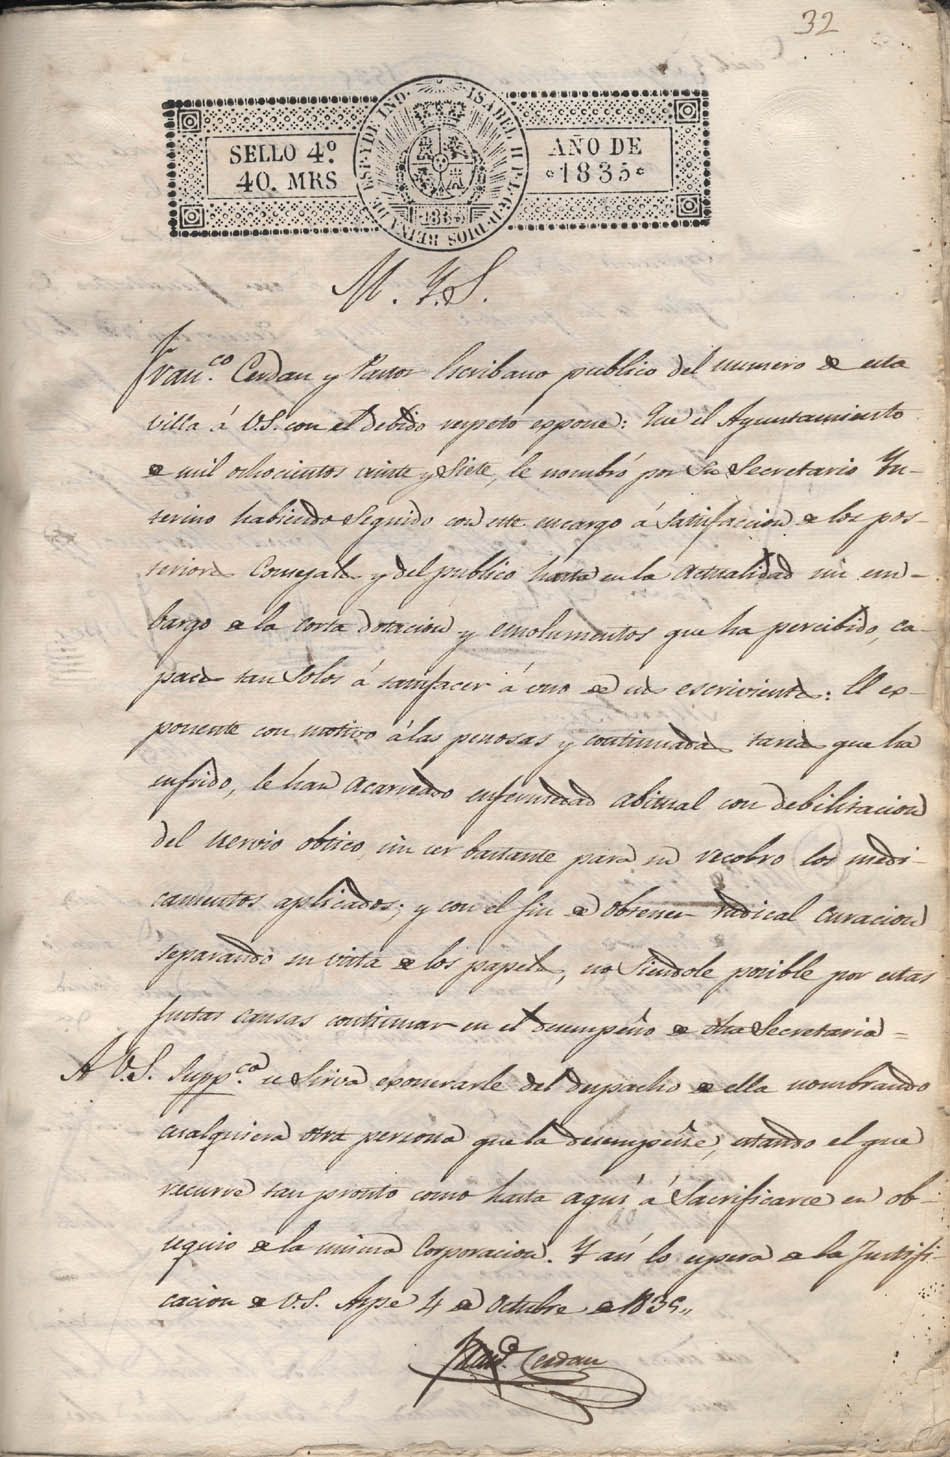 32
SELLO 4º
40. MRS
ISABEL II P. L. G. D. DIOS REINA DE ESP. Y DE IND.
1835
AÑO DE
1835
M. Y. S.
Franco. Cerdan y Pastor Escribano publico del numero de esta
villa á V.S. con el debido respeto espone: Que el Ayuntamiento
de mil ochocientos veinte y Siete, le nombró por su Secretario Yn-
terino habiendo Seguido con este encargo á Satisfaccion de los pos-
teriores Consejales y del publico hasta en la actualidad sin em-
bargo de la corta dotacion y emolumentos que ha percibido, ca-
paces tan Solos á satisfacer á uno de sus escrivientes: El ex-
ponente con motivo á las penosas y continuadas tareas que ha
sufrido, le han acarreado enfermedad abitual con debilitacion
del nervio obtico, sin ser bastante para su recobro los medi-
camentos aplicados; y con el fin de obtener radical curacion
separando su vista de los papeles, no Siendole posible por estas
justas causas continuar en el desempeño de dha Secretaria =
A V.S. Suppca. se Sirva exonerarle del despacho de ella nombrando
cualquiera otra persona que la desempeñe, estando el que
recurre tan pronto como hasta aquí á Sacrificarce en ob-
sequio de la misma Corporacion. Y así lo espera de la Justifi-
cacion de V.S. Aspe 4 de Octubre de 1835„
Franco. Cerdan